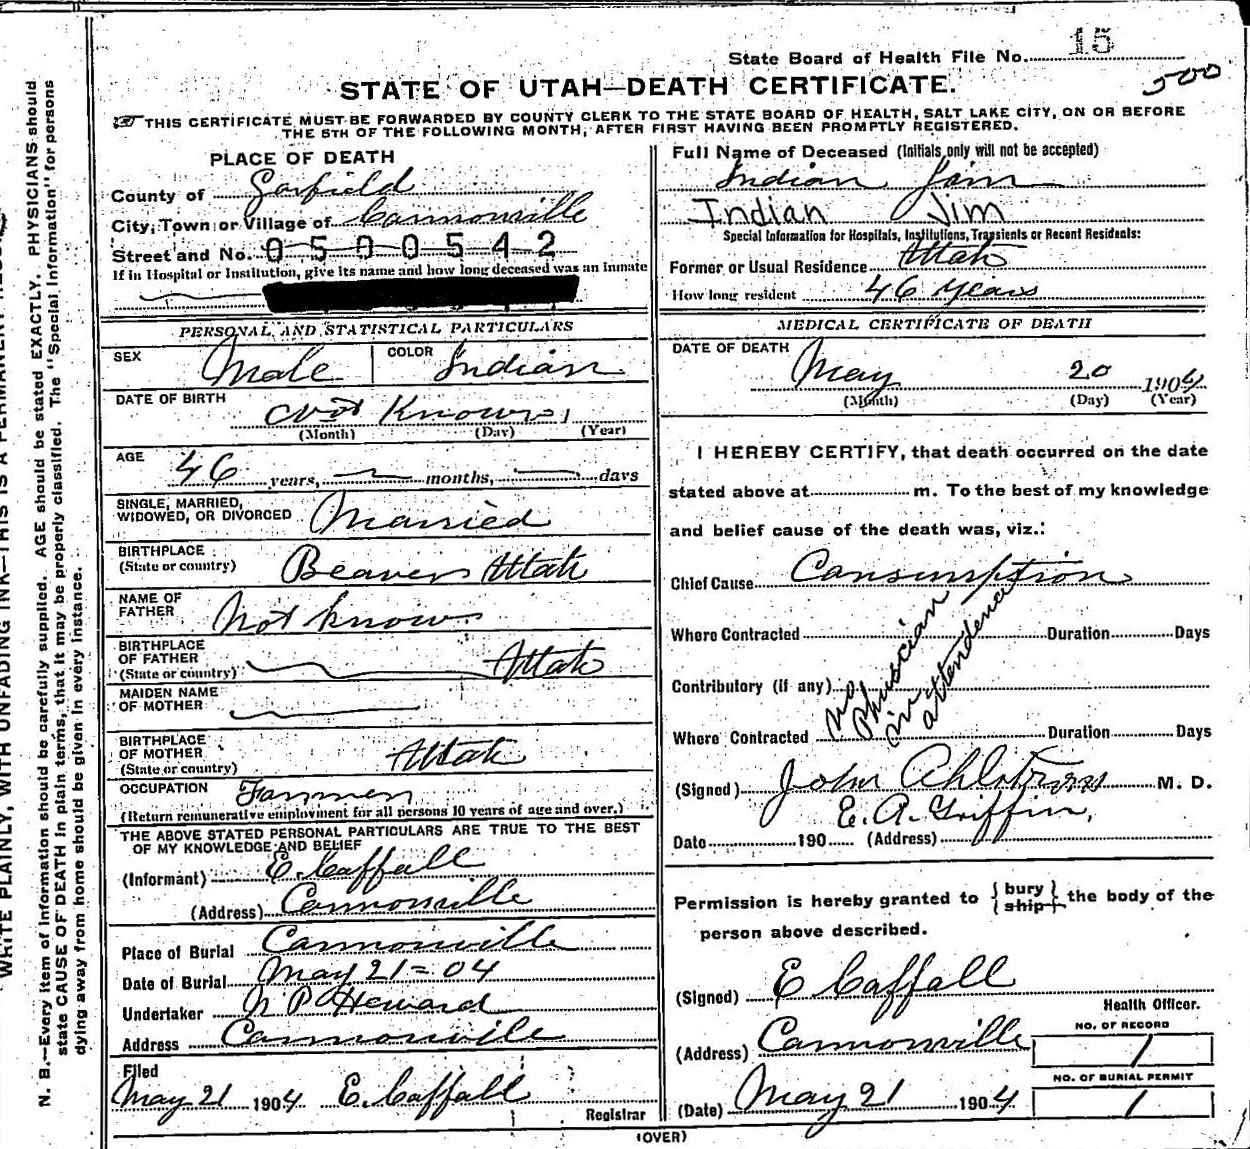 State Board of Health File No. 15
500
STATE OF UTAH—DEATH CERTIFICATE.
THIS CERTIFICATE MUST BE FORWARDED BY COUNTY CLERK TO THE STATE BOARD OF HEALTH, SALT LAKE CITY, ON OR BEFORE
THE 5TH OF THE FOLLOWING MONTH, AFTER FIRST HAVING BEEN PROMPTLY REGISTERED.
PLACE OF DEATH
County of Garfield
City, Town or Village of Cannonville
Street and No. 0500542
If in Hospital or Institution, give its name and how long deceased was an inmate
PERSONAL AND STATISTICAL PARTICULARS
SEX Male COLOR Indian
DATE OF BIRTH Not Known
(Month) (Day) (Year)
AGE 46 years, months, days
SINGLE, MARRIED,
WIDOWED, OR DIVORCED Married
BIRTHPLACE
(State or country) Beaver Utah
NAME OF
FATHER Not know
BIRTHPLACE
OF FATHER
(State or country) Utah
MAIDEN NAME
OF MOTHER
BIRTHPLACE
OF MOTHER
(State or country) Utah
OCCUPATION Farmer
(Return remunerative employment for all persons 10 years of age and over.)
THE ABOVE STATED PERSONAL PARTICULARS ARE TRUE TO THE BEST
OF MY KNOWLEDGE AND BELIEF
(Informant) E. Caffall
(Address) Cannonville
Place of Burial Cannonville
Date of Burial May 21=04
Undertaker N P Heward
Address Cannonville
Filed
May 21 1904 E. Caffall
Registrar
Full Name of Deceased (Initials only will not be accepted)
Indian Jim
Indian Jim
Special Information for Hospitals, Institutions, Transients or Recent Residents:
Former or Usual Residence Utah
How long resident 46 years
MEDICAL CERTIFICATE OF DEATH
DATE OF DEATH
May 20 1904
(Month) (Day) (Year)
I HEREBY CERTIFY, that death occurred on the date
stated above at m. To the best of my knowledge
and belief cause of the death was, viz.:
Chief Cause Consumption
Where Contracted Duration Days
Contributory (if any)
Where Contracted Duration Days
no
Physician
in
attendence
(Signed) John Ahlstrom M. D.
E. A. Griffin,
Date 190 (Address)
Permission is hereby granted to { bury } the body of the
{ ship }
person above described.
(Signed) E Caffall
Health Officer.
(Address) Cannonville
NO. OF RECORD
1
NO. OF BURIAL PERMIT
1
(Date) May 21 1904
(OVER)
N. B.—Every item of information should be carefully supplied. AGE should be stated EXACTLY. PHYSICIANS should
state CAUSE OF DEATH in plain terms, that it may be properly classified. The "Special Information" for persons
dying away from home should be given in every instance.
WRITE PLAINLY, WITH UNFADING INK—THIS IS A PERMANENT